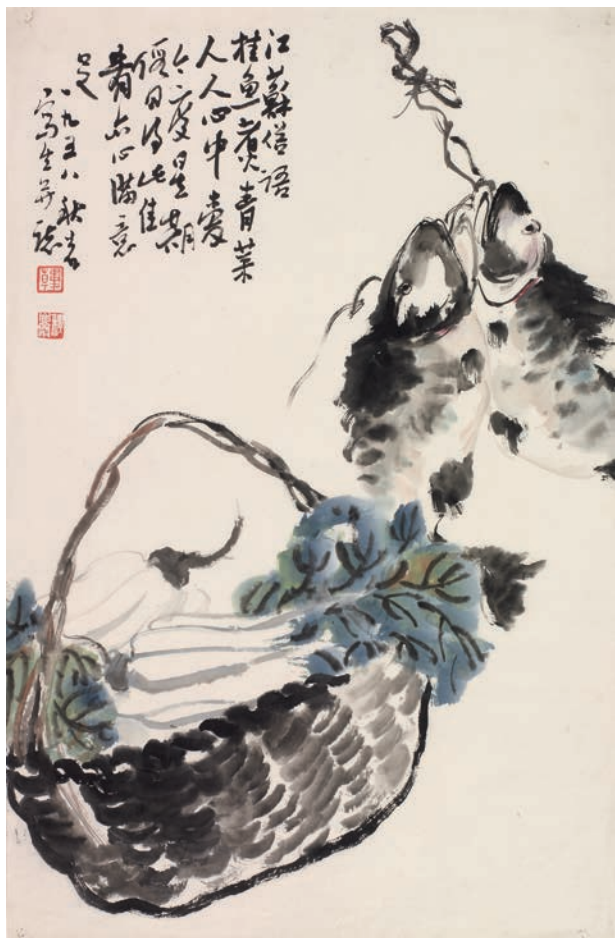 江蘇俗語
桂魚煮青菜
人人心中愛
今度星期
假日得此佳
肴亦心滿意
足
一九五八秋
寫生并誌